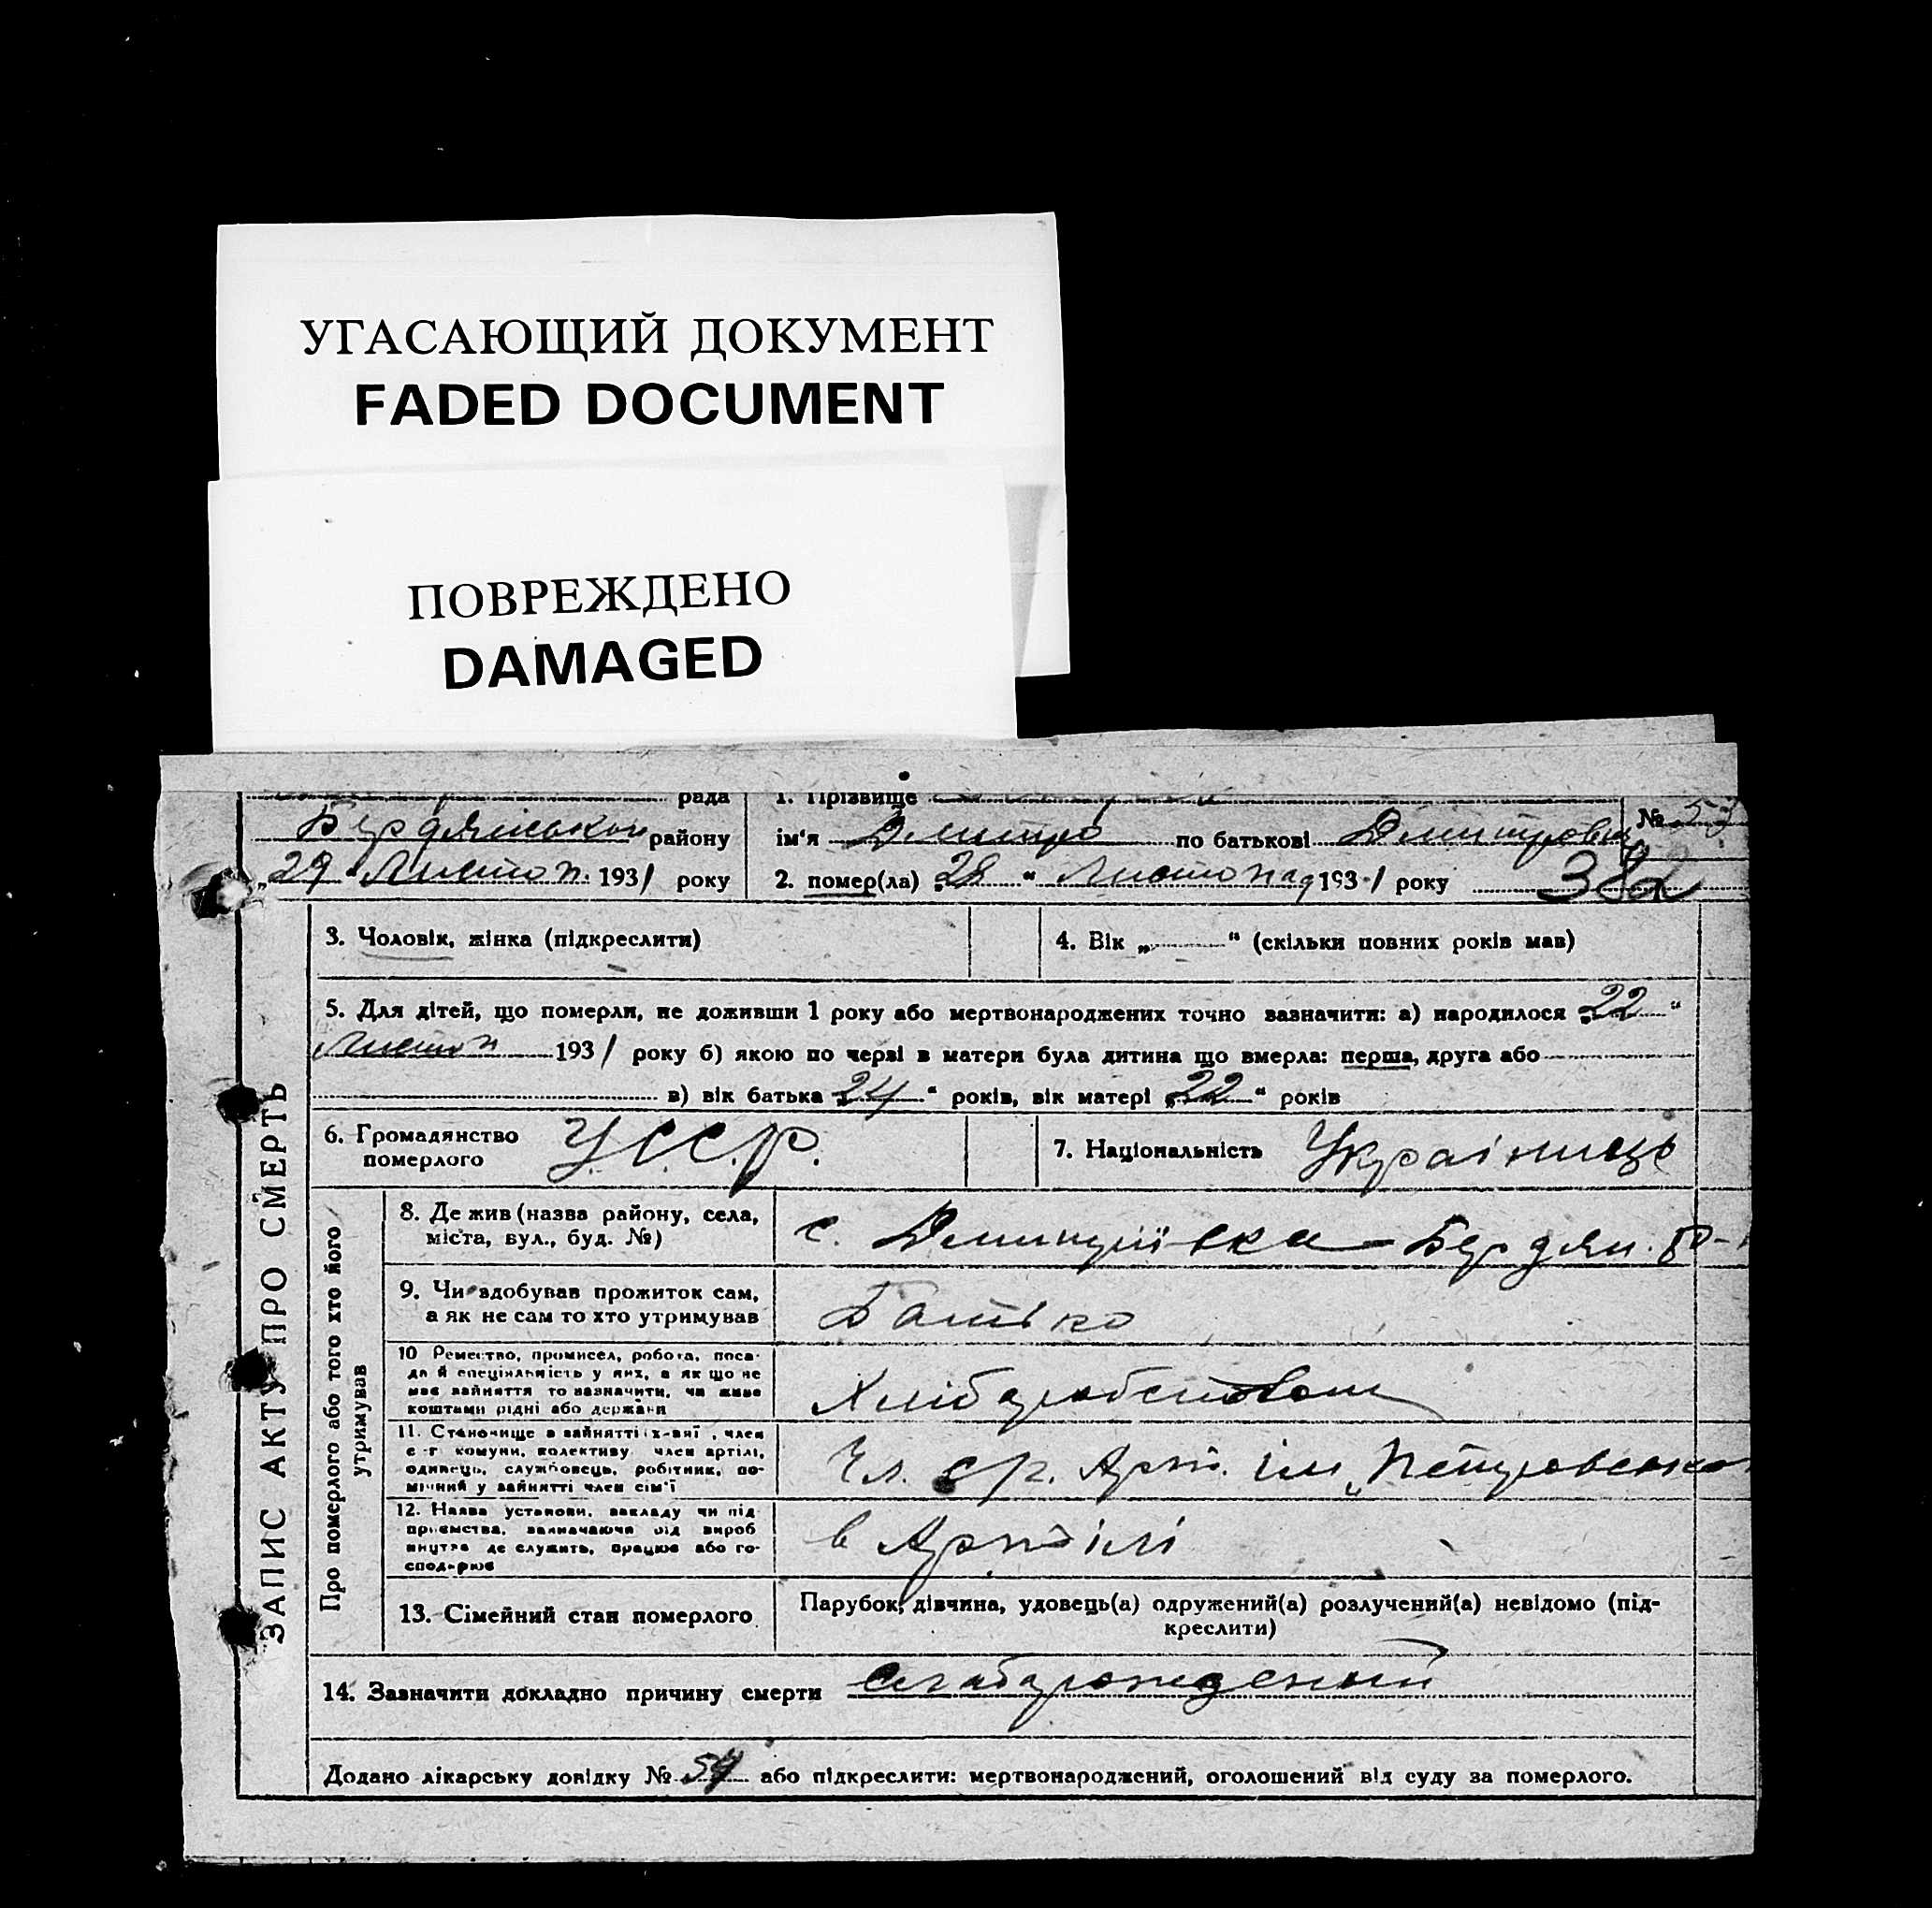 УГАСАЮЩИЙ ДОКУМЕНТ
FADED DOCUMENT
ПОВРЕЖДЕНО
DAMAGED
рада 1. Прізвище
Бердянськ району ім'я Дмитро по батькові Дмитрович №
„29 “ Листоп. 1931 року 2. помер(ла) „28 “ Листопад 1931 року 382
3. Чоловік, жінка (підкреслити) 4. Вік „ “ (скільки повних років мав)
5. Для дітей, що померли, не доживши 1 року або мертвонароджених точно зазначити: а) народилося „22 “
Листоп 1931 року б) якою по черві в матери була дитина що вмерла: перша, друга або
в) вік батька „24 “ років, вік матері „22 “ років
6. Громадянство померлого У.С.С.Р. 7. Національність Українець
ЗАПИС АКТУ ПРО СМЕРТЬ
Про померлого або того хто його утримував
8. Де жив (назва району, села,
міста, вул., буд. №) с. Дмитріївка - Бердян. р-
9. Чи здобував прожиток сам,
а як не сам то хто утримував Батько
10 Ремество, промисел, робота, поса-
да й спеціяльність у них, а як що не
має зайняття то зазначити, чи живе
коштами рідні або держави Хліборобством
11. Становище в зайнятті , член
с -г комуни, колективу член артілі,
одинець, службовець, робітник, по-
мічний у зайнятті член сім'ї Чл. Арт. ім „Петровсько
12. Назва установи, закладу чи під
приємства, зазначаючи від вироб
ництва де служить, працює або го-
сподарює в Артілі
13. Сімейний стан померлого Парубок, дівчина, удовець(а) одружений(а) розлучений(а) невідомо (під-
креслити)
14. Зазначити докладно причину смерти слаборожденый
Додано лікарську довідку № 54 або підкреслити: мертвонароджений, оголошений від суду за померлого.